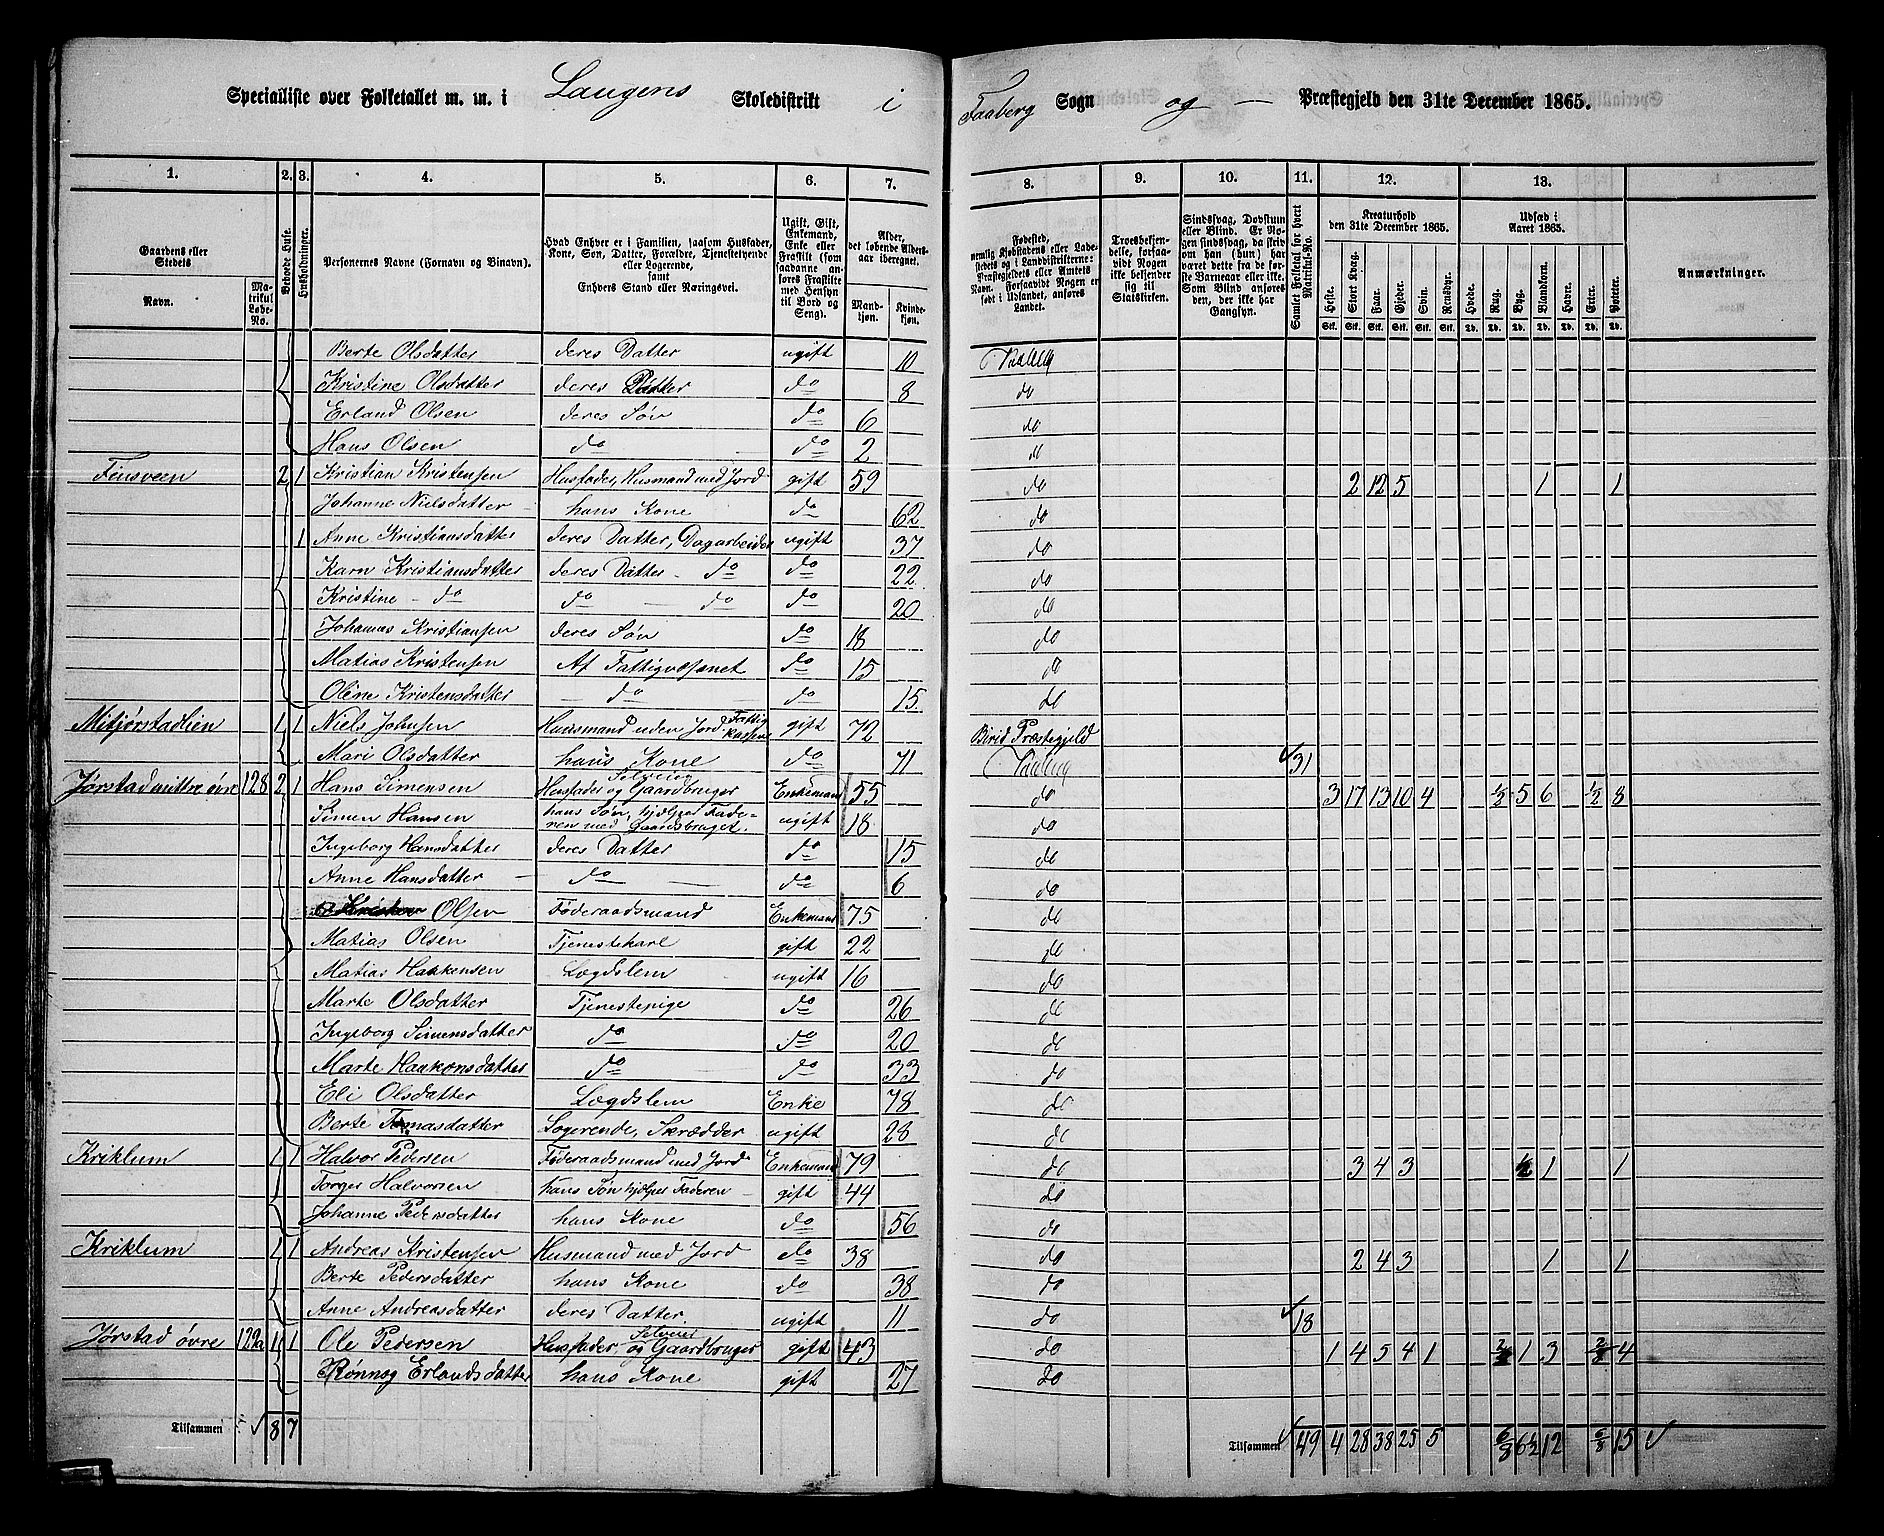 Specialliste over Folketallet m. m. i Laugens Skoledistrikt i Faaberg Sogn og — Præstegjeld den 31te December 1865.
1. 2. 3. 4. 5. 6. 7. 8. 9. 10. 11. 12. 13.
Gaardens eller Stedets Navn. Matrikul Løbe-No. Beboede Huse. Husholdninger. Personernes Navne (Fornavn og Binavn). Hvad Enhver er i Familien, saasom Husfader, Kone, Søn, Datter, Forældre, Tjenestetyende eller Logerende, samt Enhvers Stand eller Næringsvei. Ugift, Gift, Enkemand, Enke eller Fraskilt (som saadanne anføres Fraskilte med Hensyn til Bord og Seng). Alder, det løbende Alders-aar iberegnet. Mandkjøn. Kvindekjøn.
Fødested, nemlig Kjøbstadens eller Ladestedets og i Landdistrikterne: Præstegjeldets eller Amtets Navn. Forsaavidt Nogen er født i Udlandet, anføres Landet. Troesbekjendelse, forsaavidt Nogen ikke bekjender sig til Statskirken. Sindssvag, Døvstum eller Blind. Er Nogen sindssvag, da skriv om han (hun) har været dette fra de første Barneaar eller ikke. Som Blind anføres den, der ikke har Gangsyn. Samlet Folketal for hvert Matrikul-No. Kreaturhold den 31te December 1865. Udsæd i Aaret 1865. Anmærkninger.
Heste. Stort Kvæg. Faar. Gjeder. Svin. Rensdyr. Hvede. Rug. Byg. Blandkorn. Havre. Erter. Poteter.
Berte Olsdatter deres Datter ugift 10 Faaberg
Kristine Olsdatter deres Datter do 8 do
Erland Olsen deres Søn do 6 do
Hans Olsen do do 2 do
Finsveen 2 1 Kristian Kristensen Husfader, Husmand med Jord gift 59 do 2 12 5 1 1
Johanne Nielsdatter hans Kone do 62 do
1 Anne Kristiansdatter deres Datter, Dagarbeider ugift 37 do
Karn Kristiansdatter deres Datter - do do 22 do
Kristine - do do — do do 20 do
Johannes Kristiansen deres Søn do 18 do
Matias Kristensen Af Fattigvæsenet do 15 do
Oline Kristensdatter — do do 15 do
Mitjørstadlien 1 1 Niels Johnsen Husmand uden Jord. Fattigkassen gift 72 Birid Præstegjeld
Mari Olsdatter hans Kone do 71 Faaberg 31
Jørstad mittre øvre 128 2 1 Hans Simensen Husfader og Selveier Gaardbruger Enkemand 55 do 3 17 13 10 4 1/2 5 6 1/2 8
Simen Hansen hans Søn, hjælper Faderen med Gaardsbruget. ugift 18 do
Ingeborg Hansdatter deres Datter do 15 do
Anne Hansdatter — do — do 6 do
Olsen Føderaadsmand Enkemand 75 do
Matias Olsen Tjenestekarl gift 22 do
Matias Haakensen Lægdslem ugift 16 do
Marte Olsdatter Tjenestepige do 26 do
Ingeborg Simensdatter do do 20 do
Marte Haakonsdatter do do 33 do
Eli Olsdatter Lægdslem Enke 78 do
Berte Tomasdatter Logerende, Skrædder ugift 28 do
Kriklum 1 1 Halvor Pedersen Føderaadsmand med Jord Enkemand 79 do 3 4 3 1/2 1 1
Torger Halvorsen hans Søn hjelper Faderen gift 44 do
Johanne Pedersdatter hans Kone do 56 do
Kriklum 1 1 Andreas Kristensen Husmand med Jord do 38 do 2 4 3 1 1
Berte Pedersdatter hans Kone do 38 do
Anne Andreasdatter deres Datter. ugift 11 do 18
Jørstad øvre 122a 1 1 Ole Pedersen Husfader, Selveier og Gaardbruger gift 43 do 1 4 5 4 1 1 3 2/8 4
Rønnog Erlandsdatter hans Kone gift 27 do
Tilsammen 8 7 Tilsammen 49 4 28 38 25 5 6/8 6 1/2 12 6/8 15